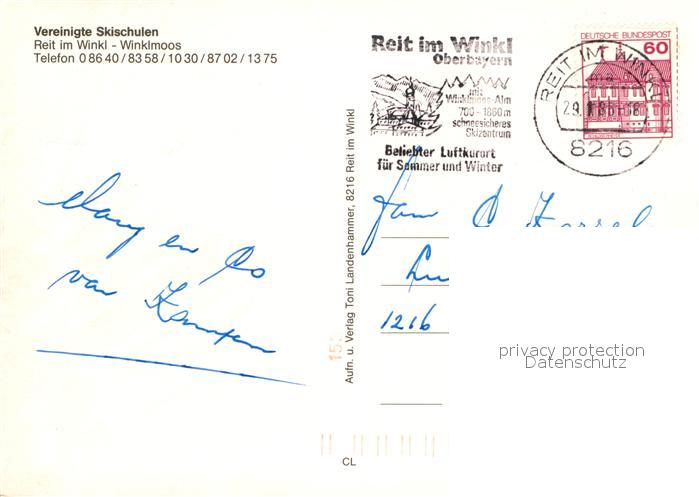 Vereinigte Skischulen
Reit im Winkl - Winklmoos
Telefon 0 86 40 / 83 58 / 10 30 / 87 02 / 13 75
Reit im Winkl
Oberbayern
mit
Winklmoos-Alm
700-1860m
schneesicheres
Skizentrum
Beliebter Luftkurort
für Sommer und Winter
REIT IM WINKL
8216
DEUTSCHE BUNDESPOST
60
Aufn. u. Verlag Toni Landenhammer, 8216 Reit im Winkl
Fam
1216
en Co
van Kampen
privacy protection
Datenschutz
CL